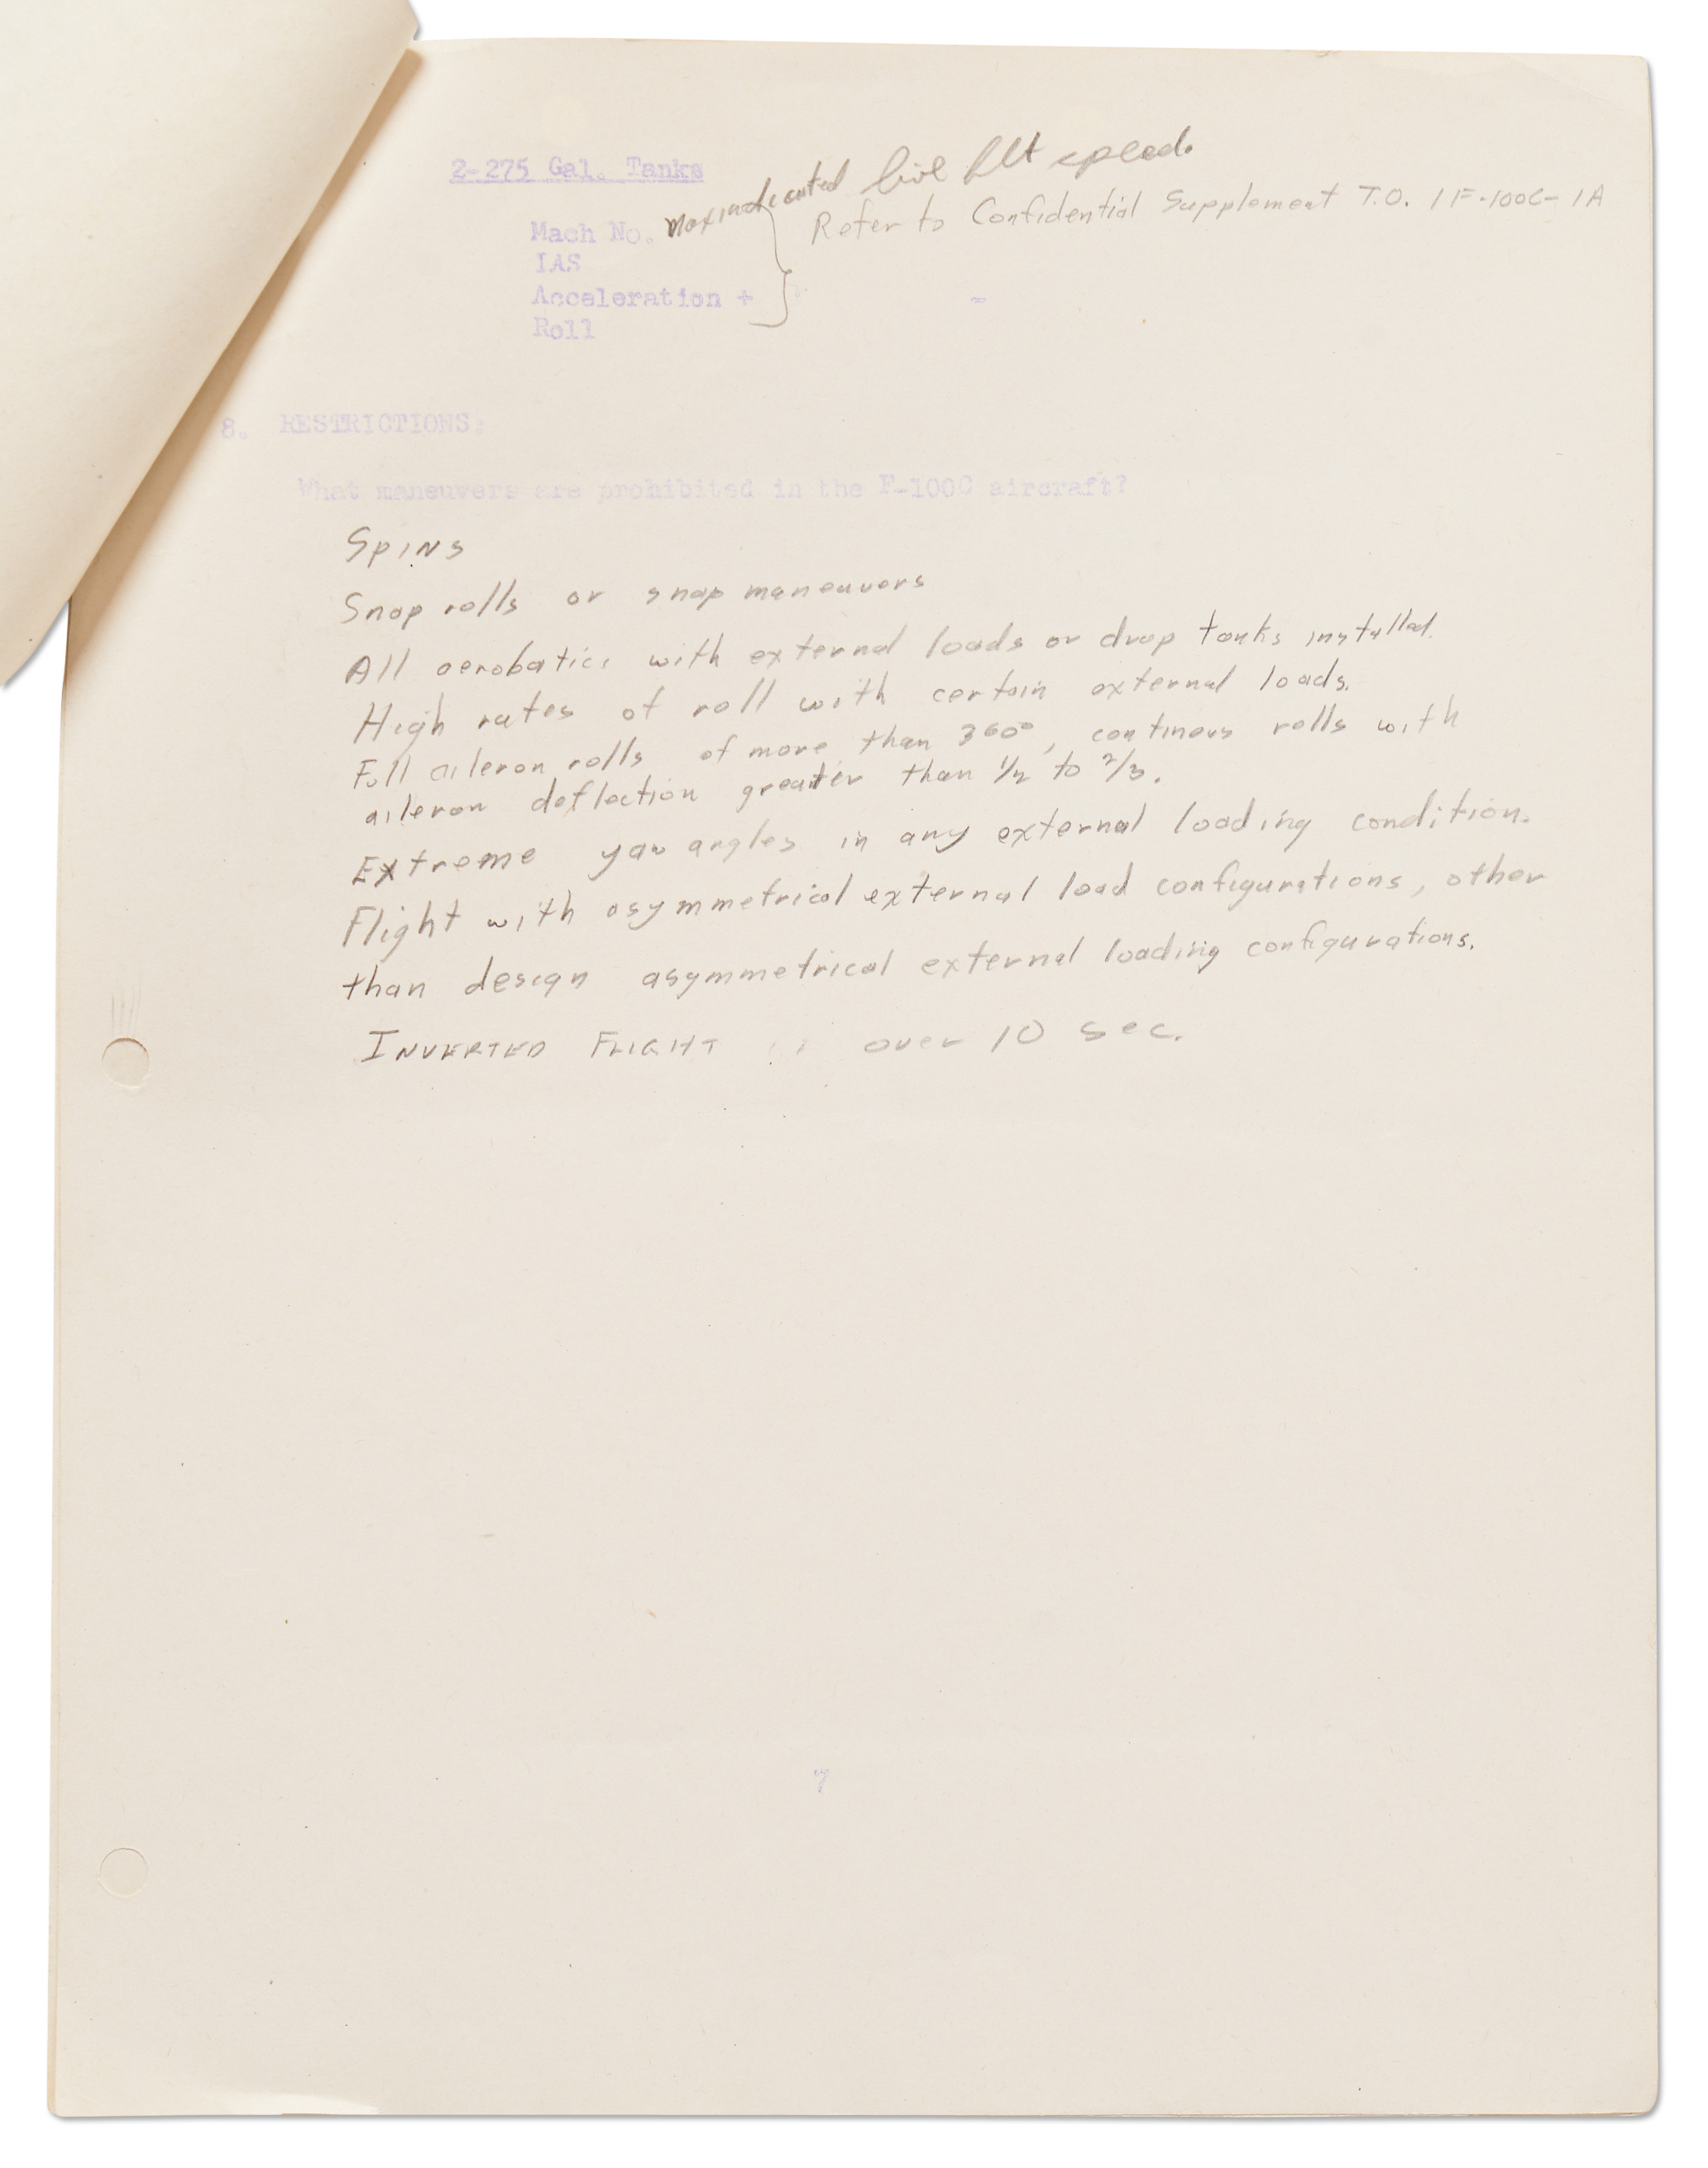 2-275 Gal. Tanks
Mach No. Max indicated level flt speed.
Refer to Confidential Supplement T.O. 1F-100C-1A
IAS
Acceleration + -
Roll
8. RESTRICTIONS:
What maneuvers are prohibited in the F-100C aircraft?
Spins
Snap rolls or snap maneuvers
All aerobatics with external loads or drop tanks installed.
High rates of roll with certain external loads.
Full aileron rolls of more than 360°, continous rolls with
aileron deflection greater than 1/2 to 2/3.
Extreme yaw angles in any external loading condition.
Flight with asymmetrical external load configurations, other
than design asymmetrical external loading configurations.
INVERTED FLIGHT over 10 sec.
7